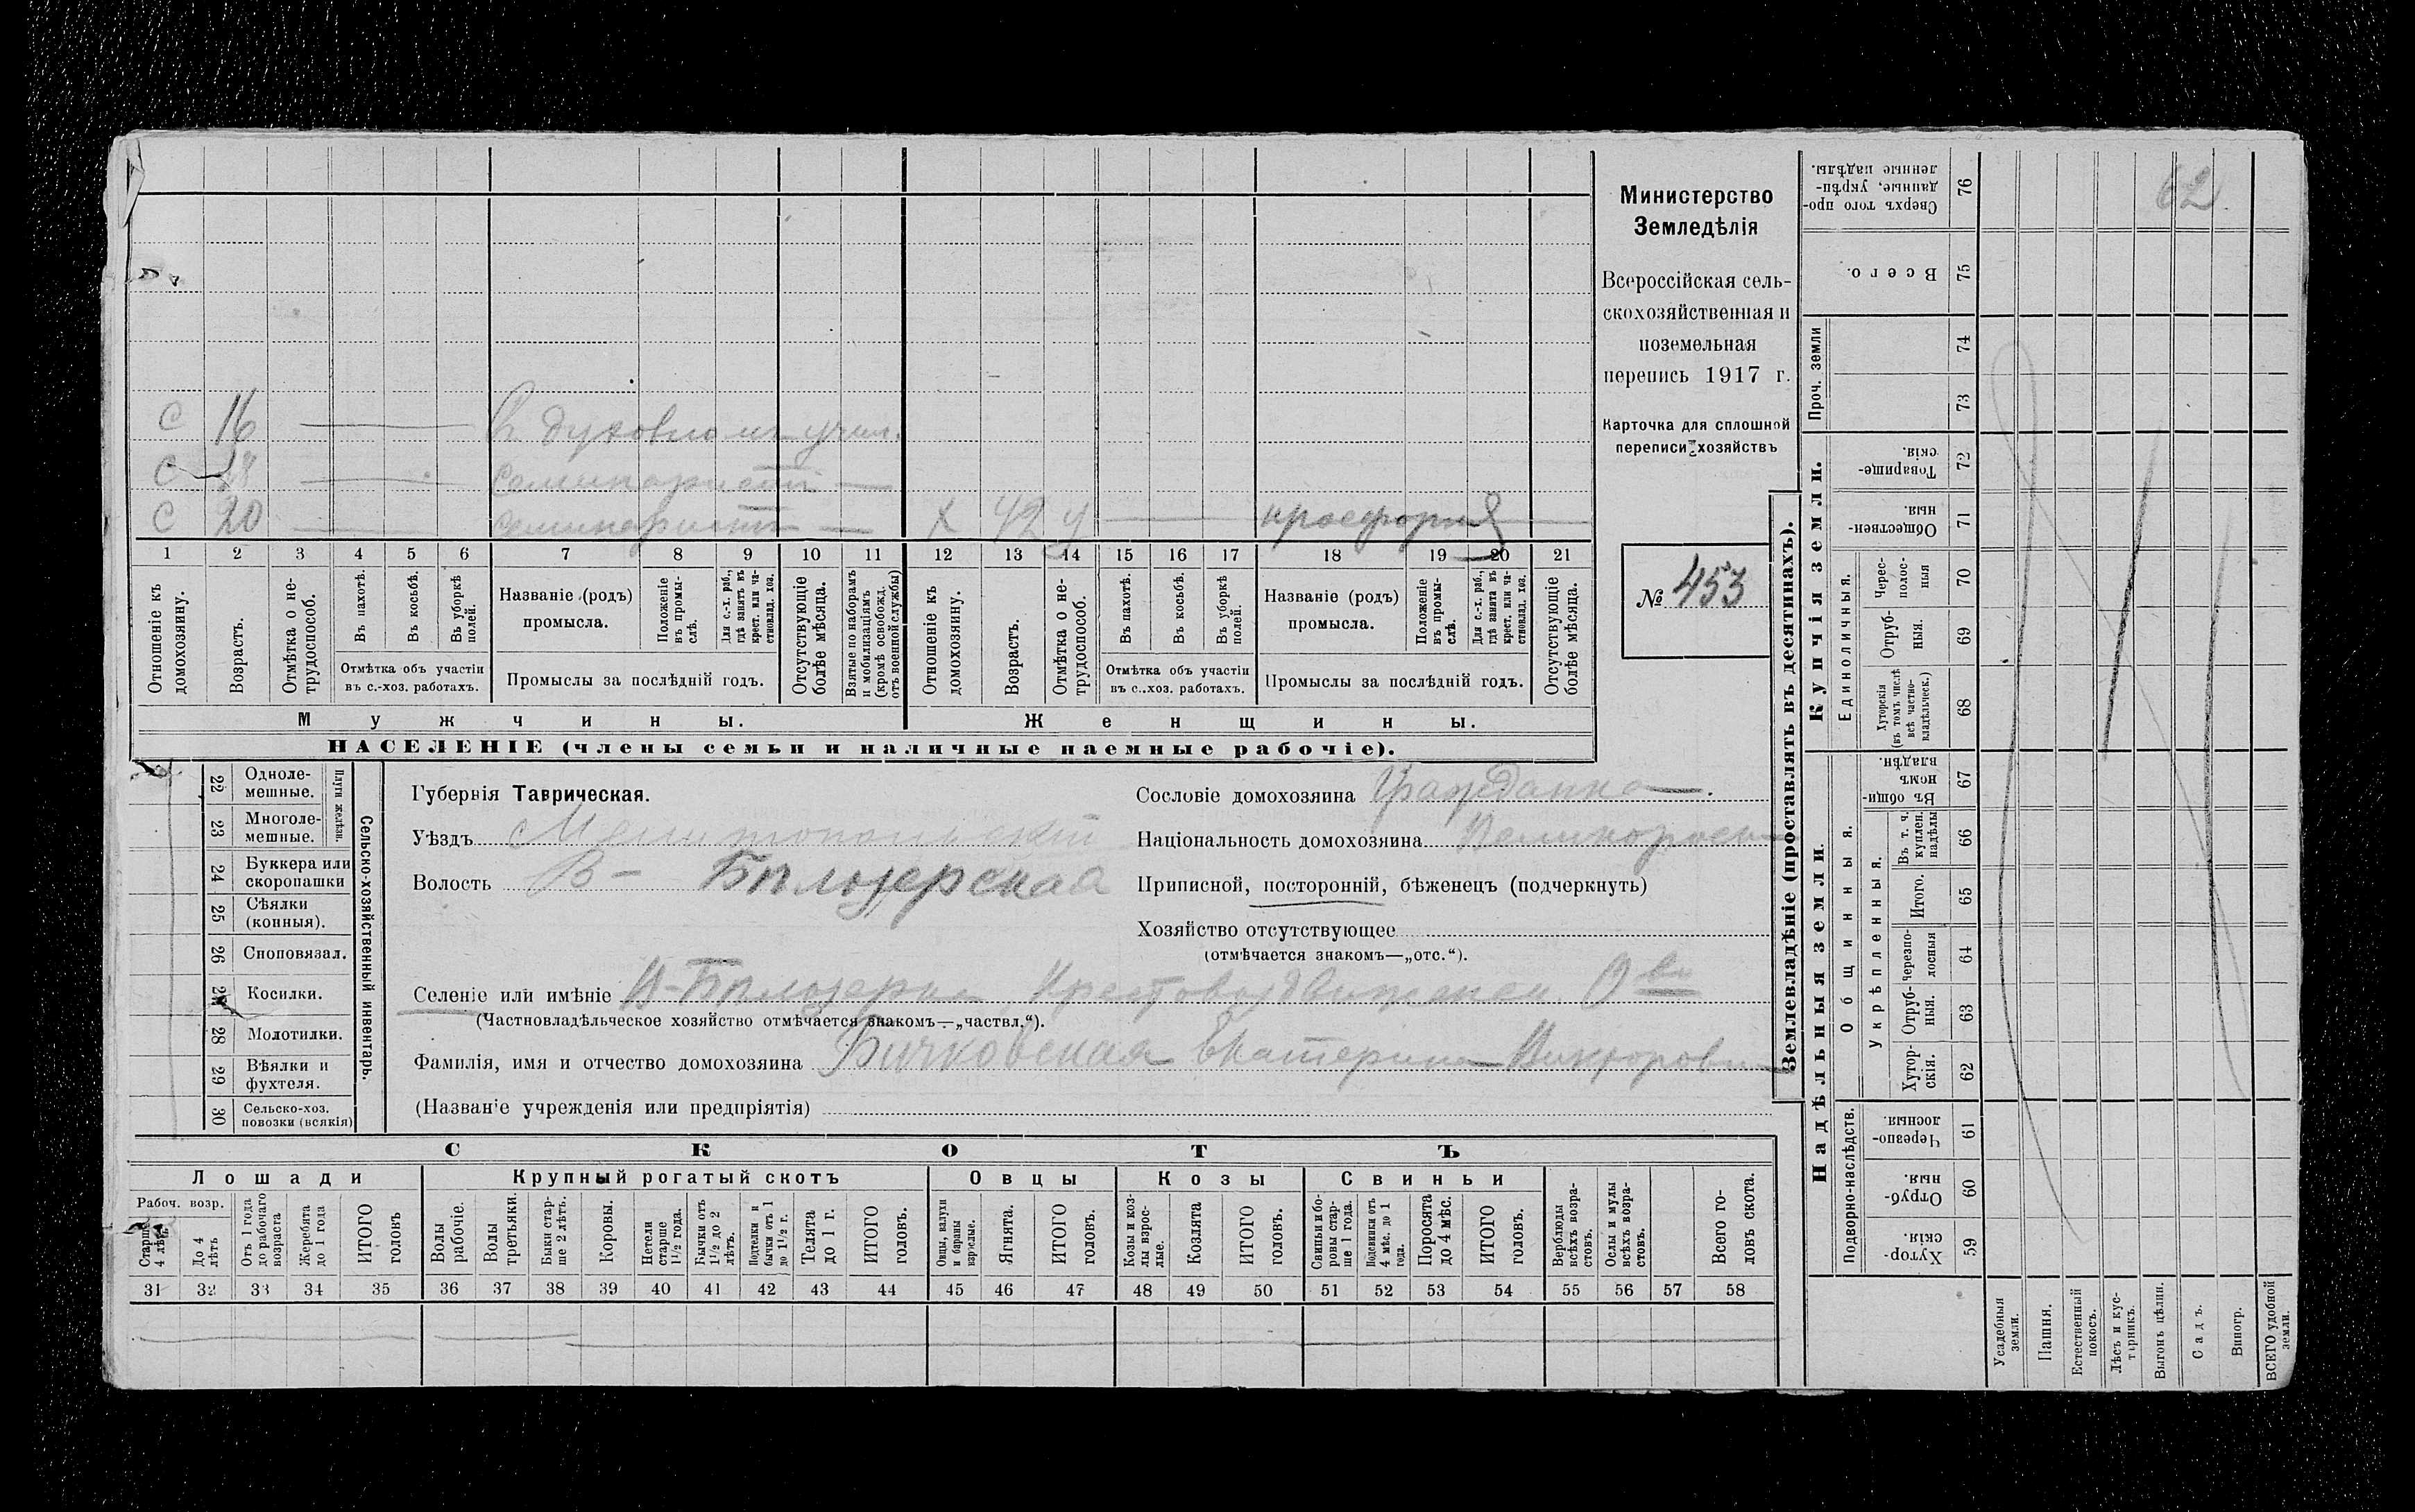 С 16 — Въ духовномъ учил.
С 18 — семинаристъ —
С 20 — семинаристъ — х 42 — просфорня
1 2 3 4 5 6 7 8 9 10 11 12 13 14 15 16 17 18 19 20 21
Отношеніе къ домохозяину.
Возрастъ.
Отмѣтка о не-трудоспособ.
Въ пахотѣ.
Въ косьбѣ.
Въ уборкѣ полей.
Отмѣтка объ участіи
въ с.-хоз. работахъ.
Названіе (родъ)
промысла.
Положеніе въ промы-слѣ.
Для с.-х. раб., гдѣ занятъ въ крест. или ча-стновлад. хоз.
Промыслы за послѣдній годъ.
Отсутствующіе болѣе мѣсяца.
Взятые по наборамъ и мобилизаціямъ (кромѣ освобожд. отъ военной службы)
Отношеніе къ домохозяину.
Возрастъ.
Отмѣтка о не-трудоспособ.
Въ пахотѣ.
Въ косьбѣ.
Въ уборкѣ полей.
Отмѣтка объ участіи
въ с.-хоз. работахъ.
Названіе (родъ)
промысла.
Положеніе въ промы-слѣ.
Для с.-х. раб., гдѣ занята въ крест. или ча-стновлад. хоз.
Промыслы за послѣдній годъ.
Отсутствующіе болѣе мѣсяца.
Мужчины.
Женщины.
НАСЕЛЕНІЕ (члены семьи и наличные наемные рабочіе).
Министерство
Земледѣлія
Всероссійская сель-
скохозяйственная и
поземельная
перепись 1917 г.
Карточка для сплошной
переписи хозяйствъ
№ 453
22 Одноле-мешные.
23 Многоле-мешные.
Плуги желѣзн.
24 Буккера или скоропашки
25 Сѣялки (конныя).
26 Сноповязал.
27 Косилки.
28 Молотилки.
29 Вѣялки и фухтеля.
30 Сельско-хоз. повозки (всякія)
Сельско-хозяйственный инвентарь.
Губернія Таврическая.
Уѣздъ Мелитопольскій
Волость В-Бѣлозерская
Сословіе домохозяина Гражданка
Національность домохозяина Великоросс
Приписной, посторонній, бѣженецъ (подчеркнуть)
Хозяйство отсутствующее
(отмѣчается знакомъ—„отс.“).
Селеніе или имѣніе В-Бѣлозерка, Крестовоздвиженск.
(Частновладѣльческое хозяйство отмѣчается знакомъ—„частвл.“).
Фамилія, имя и отчество домохозяина Бычковская Екатерина Викторовн
(Названіе учрежденія или предпріятія)
СКОТЪ
Лошади
Крупный рогатый скотъ
Овцы
Козы
Свиньи
Рабоч. возр.
Старше 4 лѣтъ
До 4 лѣтъ
Отъ 1 года до рабочаго возраста
Жеребята до 1 года
ИТОГО головъ
Волы рабочіе.
Волы третьяки.
Быки стар-ше 2 лѣтъ.
Коровы.
Нетели старше 1½ года.
Бычки отъ 1½ до 2 лѣтъ.
Подтелки и бычки отъ 1 до 1½ г.
Телята до 1 г.
ИТОГО головъ.
Овцы, валухи и бараны взрослые.
Ягнята.
ИТОГО головъ.
Козы и коз-лы взрос-лые.
Козлята
ИТОГО головъ.
Свиньи и бо-ровы стар-ше 1 года.
Подсвинки отъ 4 мѣс. до 1 года.
Поросята до 4 мѣс.
ИТОГО головъ.
Верблюды всѣхъ возра-стовъ.
Ослы и мулы всѣхъ возра-стовъ.
Всего го-ловъ скота.
31 32 33 34 35 36 37 38 39 40 41 42 43 44 45 46 47 48 49 50 51 52 53 54 55 56 57 58
Землевладѣніе (проставлять въ десятинахъ).
Купчія земли.
Надѣльныя земли.
Сверхъ того про-данные, укрѣп-ленные надѣлы. 76
62
Всего. 75
Проч. земли
74
73
Товарище-скія. 72
Обществен-ныя. 71
Единоличныя.
Черес-полос-ныя 70
Отруб-ныя. 69
Хуторскія (въ томъ числѣ всѣ частно-владѣльческ.) 68
Общинныя.
Въ общин-номъ владѣн. 67
Укрѣпленныя.
Въ т. ч. куплен. надѣлы 66
Итого. 65
Черезпо-лосныя 64
Отруб-ныя. 63
Хутор-скія. 62
Подворно-наслѣдств.
Черезпо-лосныя. 61
Отруб-ныя. 60
Хутор-скія. 59
Усадебныя земли.
Пашня.
Естественный покосъ.
Лѣсъ и кус-тарникъ.
Выгонъ цѣлин.
Садъ.
Виногр.
ВСЕГО удобной земли.